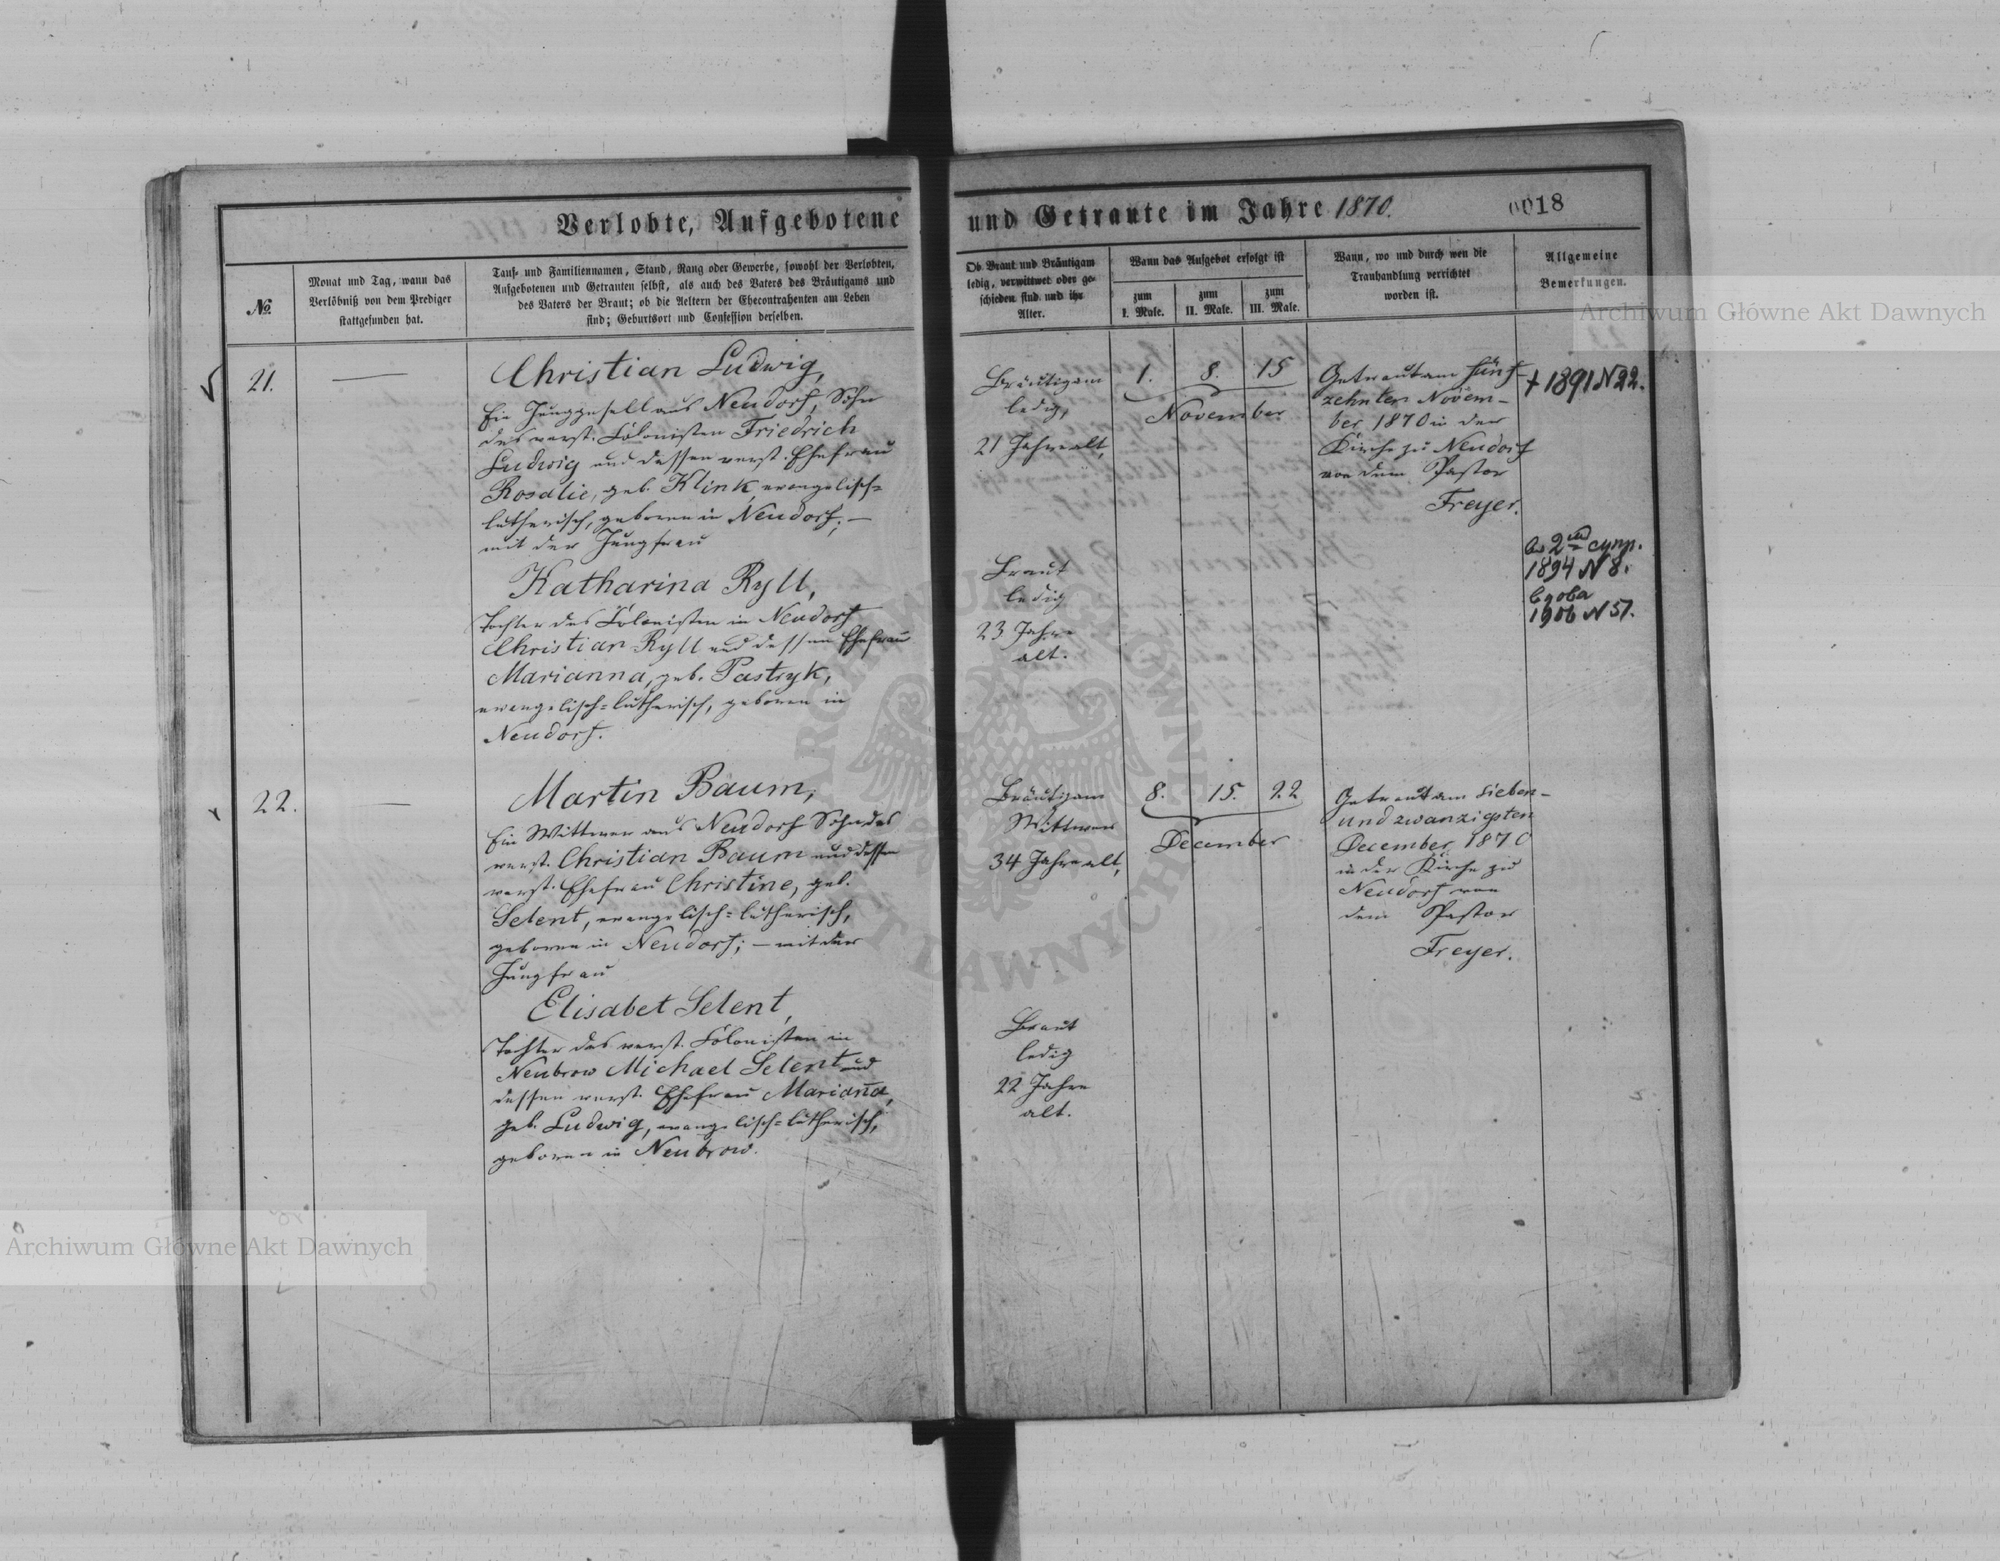 Verlobte, Aufgebotene und Getraute im Jahre 1870.
0018
№
Monat und Tag, wann das
Verlöbniß von dem Prediger
stattgefunden hat.
Tauf- und Familiennamen, Stand, Rang oder Gewerbe, sowohl der Verlobten,
Aufgebotenen und Getrauten selbst, als auch des Vaters des Bräutigams und
des Vaters der Braut; ob die Aeltern der Ehecontrahenten am Leben
sind; Geburtsort und Confession derselben.
Ob Braut und Bräutigam
ledig, verwittwet oder ge-
schieden sind und ihr
Alter.
Wann das Aufgebot erfolgt ist
zum
I. Male.
zum
II. Male.
zum
III. Male.
Wann, wo und durch wen die
Trauhandlung verrichtet
worden ist.
Allgemeine
Bemerkungen.
21.
—
Christian Ludwig,
Ein Junggesell aus Neudorf, Sohn
des verst. Colonisten Friedrich
Ludwig und dessen verst. Ehefrau
Rosalie, geb. Klink, evangelisch=
lutherisch, geboren in Neudorf; —
mit der Jungfrau
Katharina Ryll,
Tochter des Colonisten in Neudorf
Christian Ryll und dessen Ehefrau
Marianna, geb. Pastryk,
evangelisch=lutherisch, geboren in
Neudorf.
Bräutigam
ledig,
21 Jahre alt,
Braut
ledig
23 Jahre
alt.
1. 8. 15
November
Getraut am Fünf-
zehnten Novem-
ber 1870 in der
Kirche zu Neudorf
von dem Pastor
Freyer.
+ 1891 N 22.
2 супр.
1894 N 8.
вдова
1906 N 51.
22.
—
Martin Baum,
Ein Wittwer aus Neudorf Sohn des
verst. Christian Baum und dessen
verst. Ehefrau Christine, geb.
Selent, evangelisch=lutherisch,
geboren in Neudorf; — mit der
Jungfrau
Elisabet Selent,
Tochter des verst. Colonisten in
Neubrow Michael Selent und
dessen verst. Ehefrau Marian̄a,
geb. Ludwig, evangelisch=lutherisch,
geboren in Neubrow.
Bräutigam
Wittwer
34 Jahre alt,
Braut
ledig
22 Jahre
alt.
8. 15. 22
December
Getraut am Sieben-
undzwanzigsten
December 1870
in der Kirche zu
Neudorf von
dem Pastor
Freyer.
Archiwum Główne Akt Dawnych
Archiwum Główne Akt Dawnych